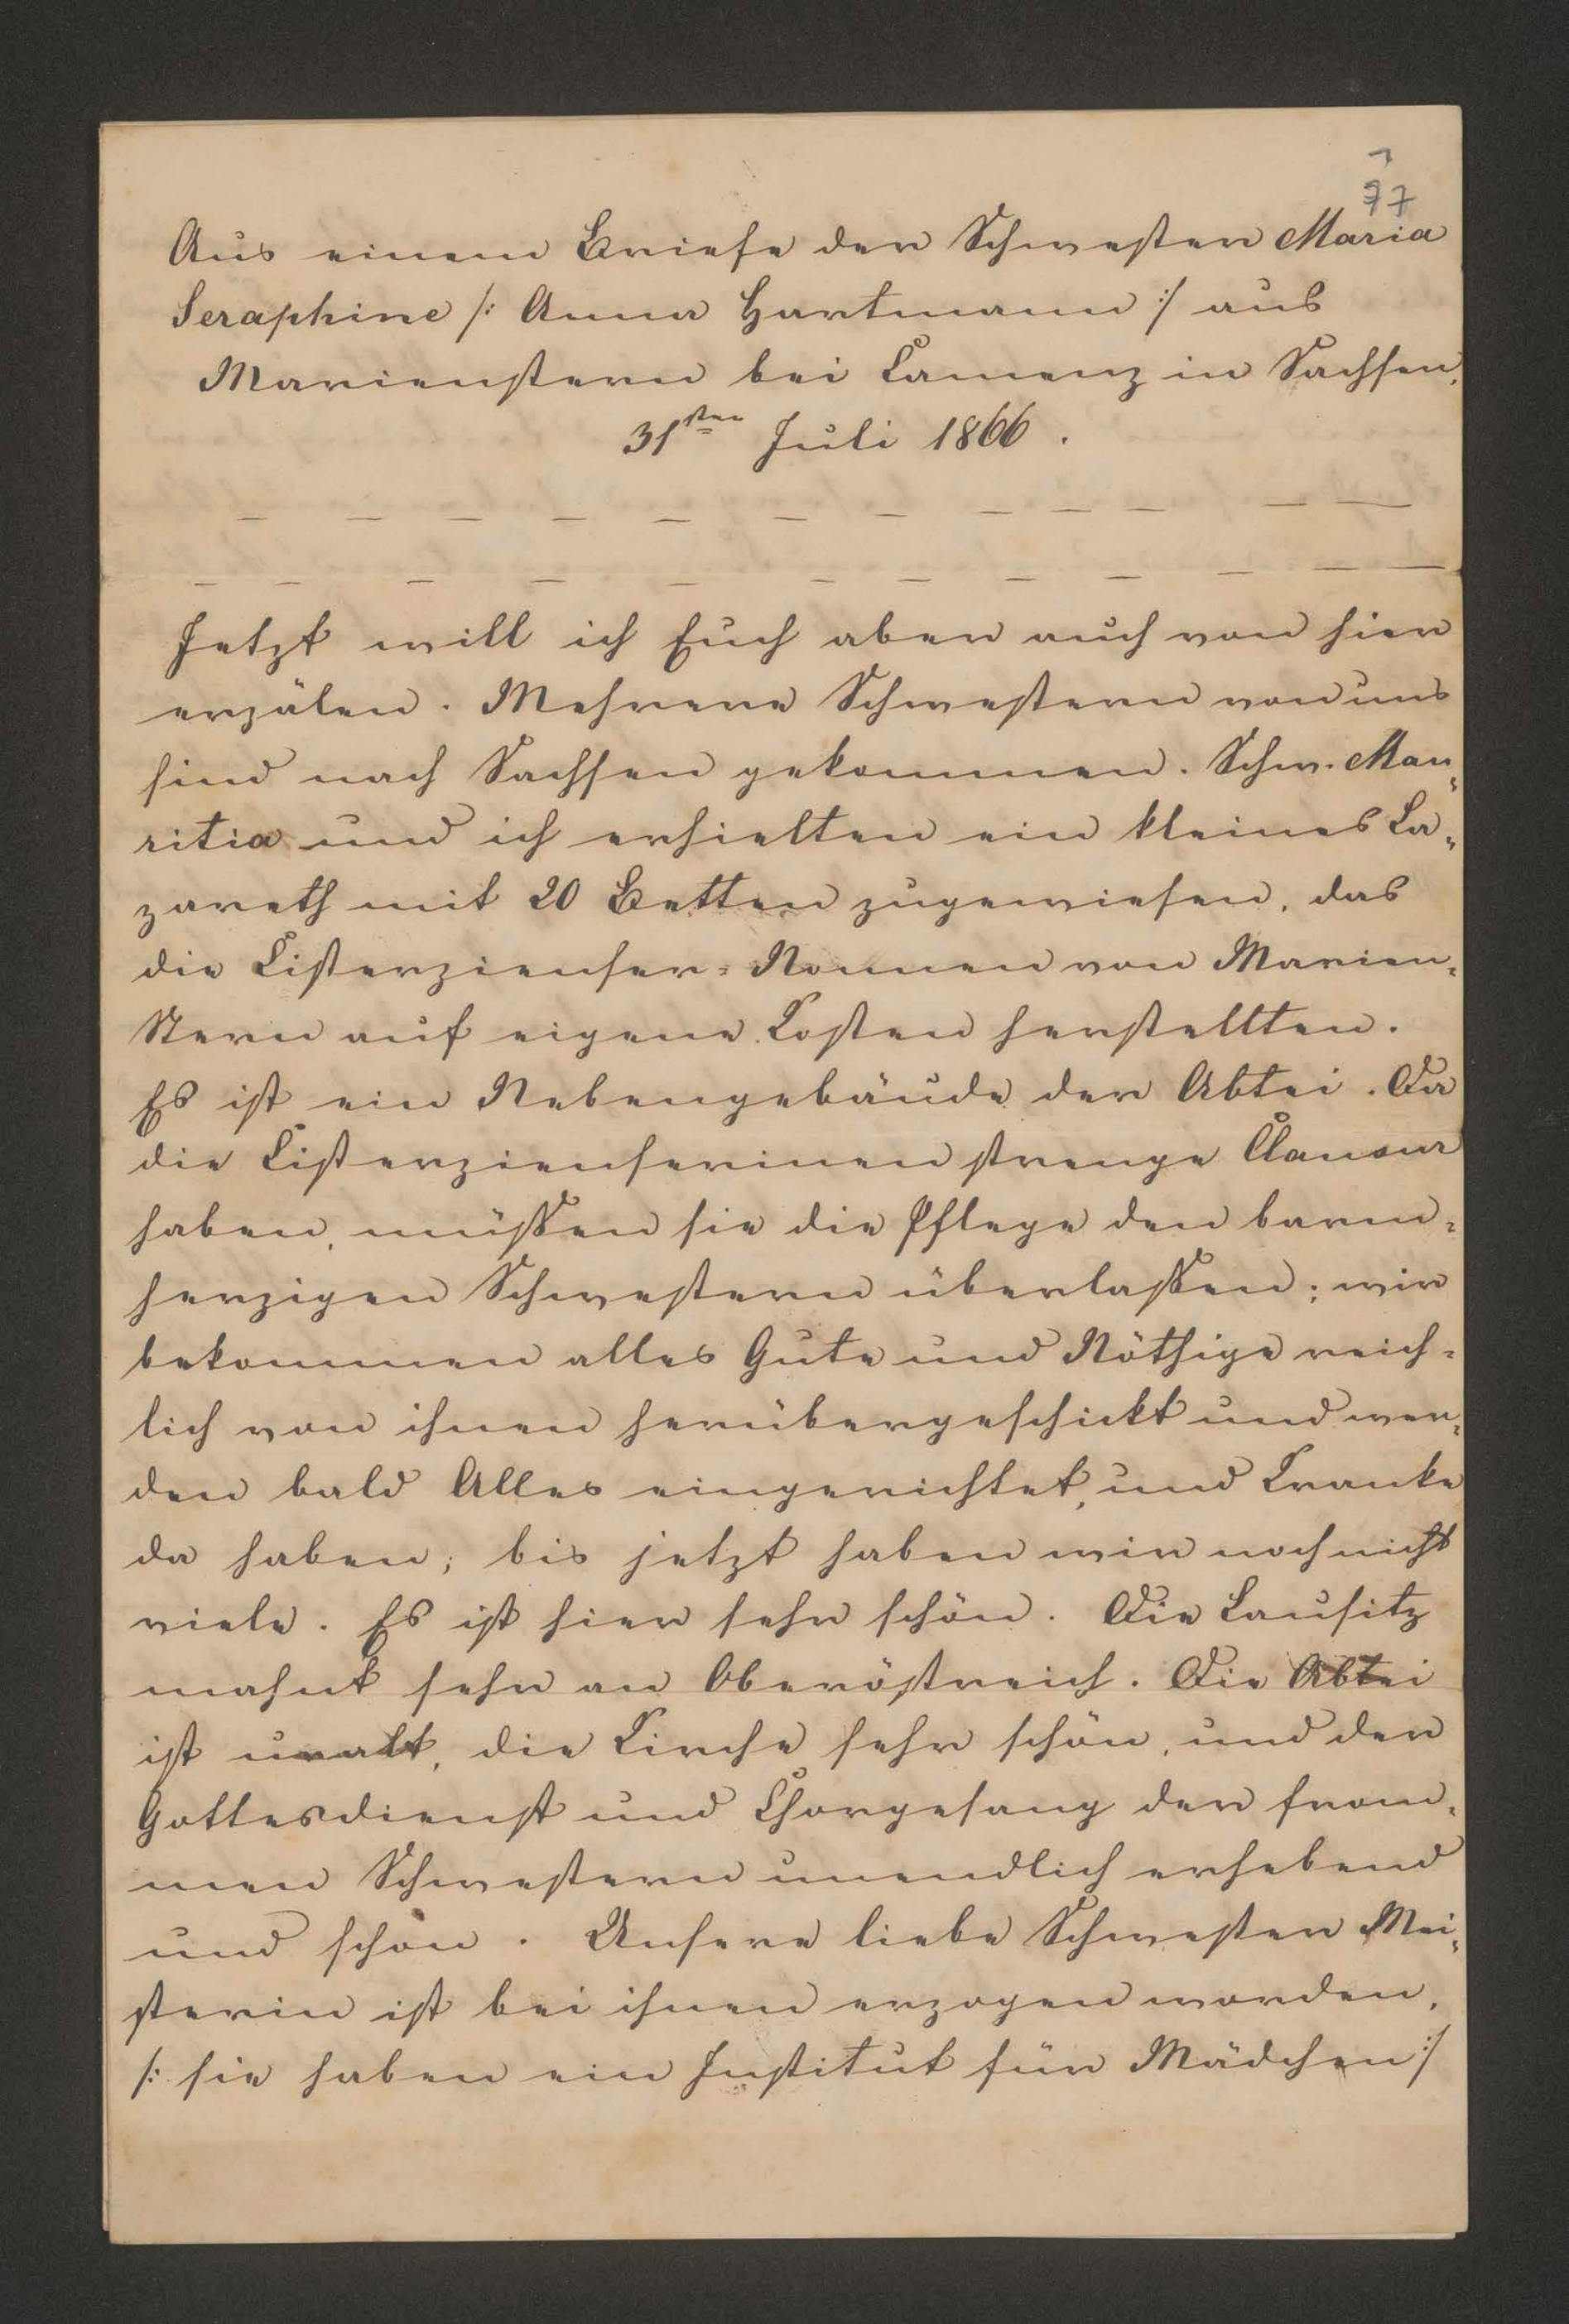 77
Aus einem Briefe der Schwester Maria
Seraphine /: Anna Hartmann :/ aus
Marienstern bei Camenz in Sachsen,
31sten Juli 1866.
Jetzt will ich Euch aber auch von hier
erzälen. Mehrere Schwestern von uns
sind nach Sachsen gekommen. Schw. Mau„
ritia und ich erhielten ein kleines La„
zareth mit 20 Betten zugewiesen, das
die Cisterzienser=Nonnen von Marien=
Stern auf eigene Kosten herstellten.
Es ist ein Nebengebäude der Abtei. Da
die Cisterzienserinen strenge Clausur
haben, müßen sie die Pflege den barm=
herzigen Schwestern überlaßen; wir
bekommen alles Gute und Nöthige reich=
lich von ihnen herübergeschickt und wer=
den bald Alles eingerichtet, und Kranke
da haben; bis jetzt haben wir noch nicht
viele. Es ist hier sehr schön. Die Lausitz
mahnt sehr an Oberöstreich. Die Abtei
ist uralt, die Kirche sehr schön, und der
Gottesdienst und Chorgesang der from=
men Schwestern unendlich erhebend
und schön. Unsere liebe Schwester Mei„
sterin ist bei ihnen erzogen worden,
/: sie haben ein Institut für Mädchen :/